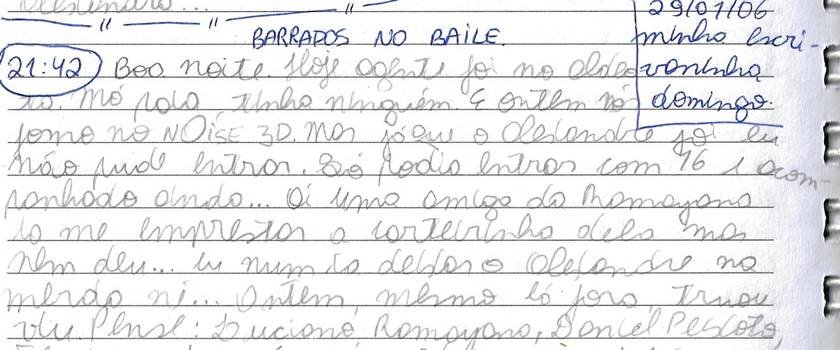 29/01/06
BARRADOS NO BAILE. minha escri-
21:42 Boa noite. Hoje agente foi no vaninha
to. Mó rolo tinha ninguém. E ontem nó domingo.
fomo no NOiSE 3D. Mas já que o Alexandre foi eu
não pude entrar. Só podia entrar com 16 e acom-
panhado ainda... Aí uma amiga da Ramayana
ia me emprestar a carteirinha dela mas
nem deu... Eu num ia deixar o Alexandre na
merda né... Ontem, mesmo lá fora, trwou
vlw. Pense: Luciano, Ramayana, Daniel Peixoto,